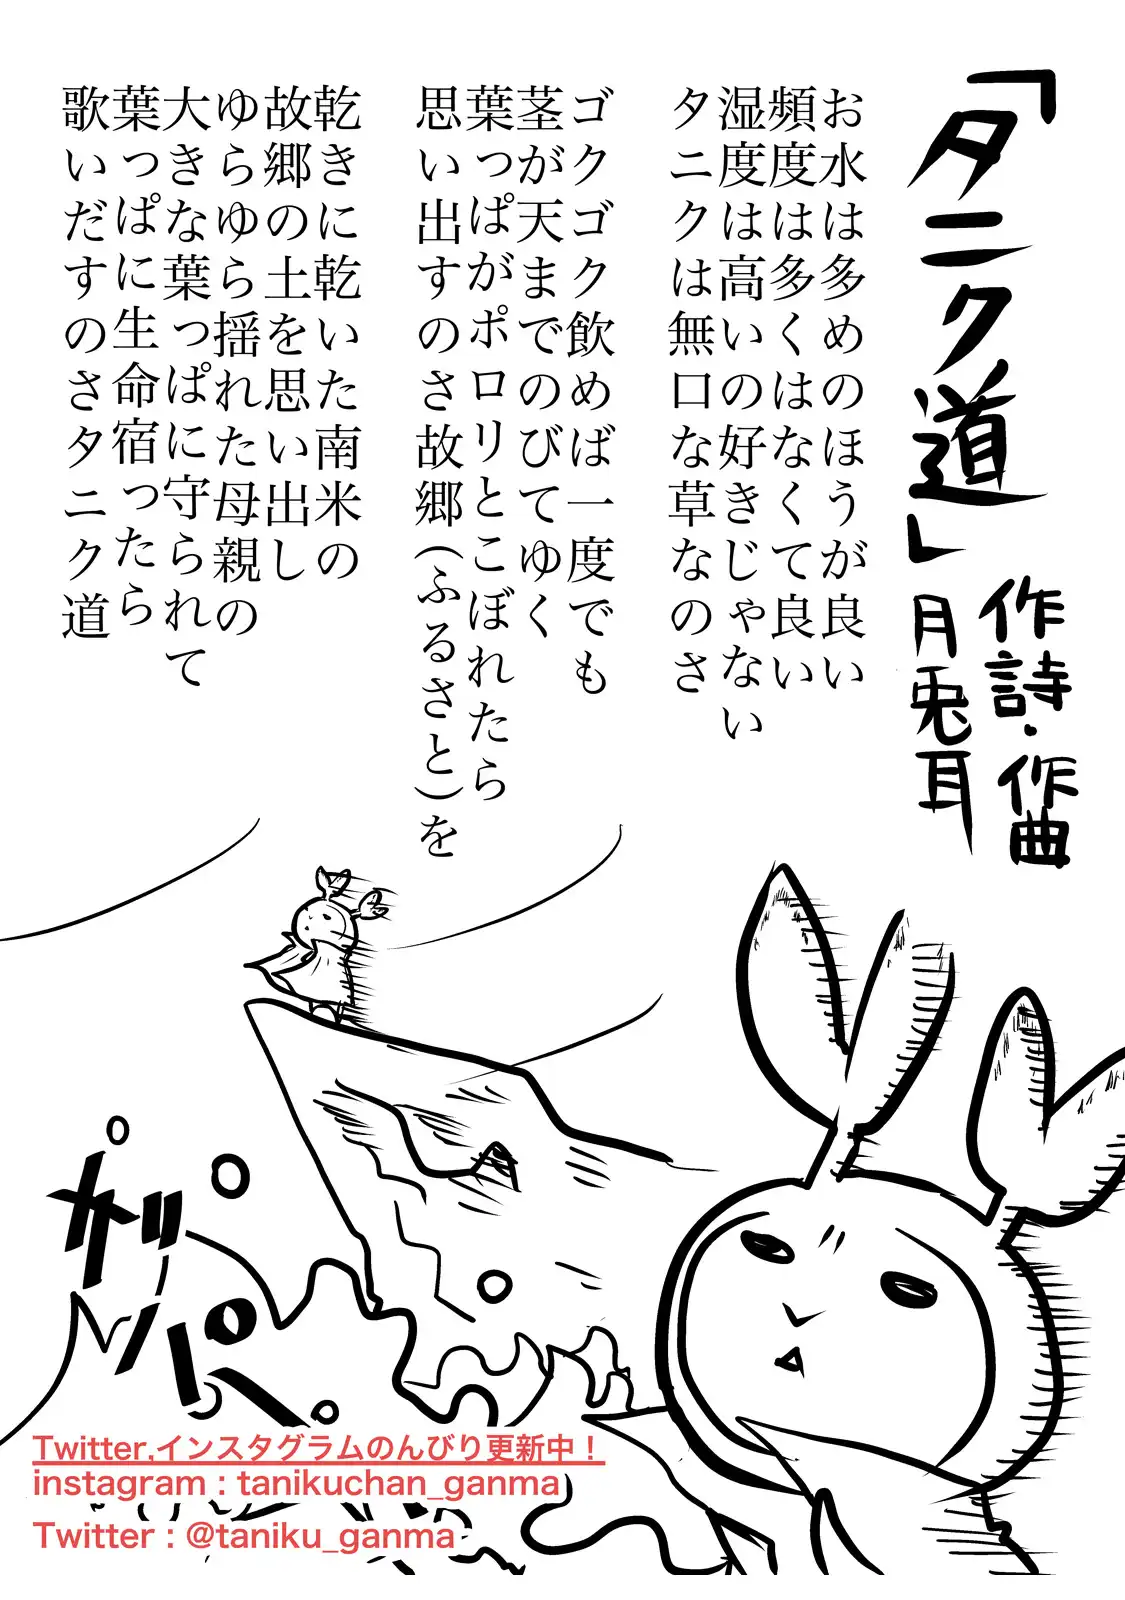 「タニク道」
作詩・作曲
月兎耳
お水は多めのほうが良い
頻度は多くはなくて良い
湿度は高いの好きじゃない
タニクは無口な草なのさ
ゴクゴク飲めば一度でも
茎が天までのびてゆく
葉っぱがポロリとこぼれたら
思い出すのさ故郷(ふるさと)を
乾きに乾いた南米の
故郷の土を思い出し
ゆらゆら揺れた母親の
大きな葉っぱに守られて
葉っぱに生命宿ったら
歌いだすのさタニク道
ザッパーン
Twitter,インスタグラムのんびり更新中！
instagram : tanikuchan_ganma
Twitter : @taniku_ganma